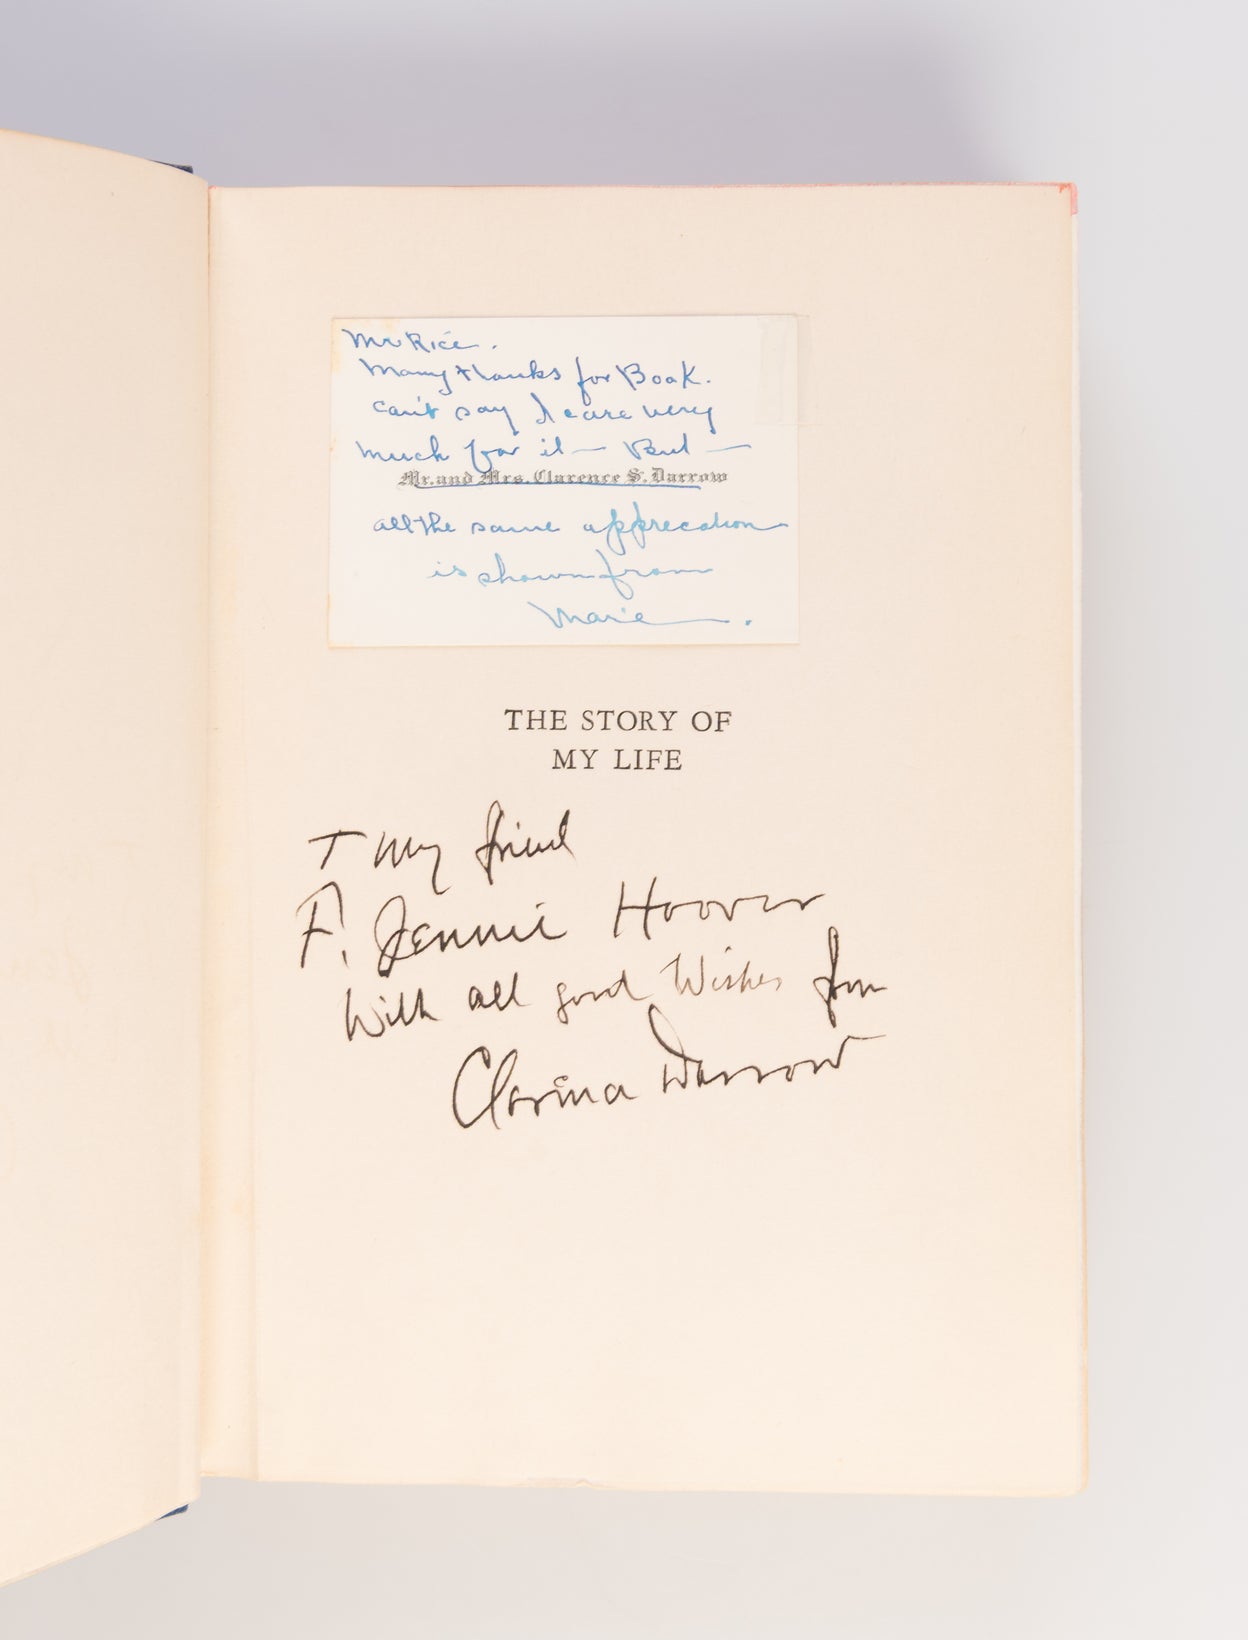 Mr Rice.
Many thanks for Book.
can't say I care very
much for it — But —
Mr. and Mrs. Clarence S. Darrow
all the same apprecation
is shown from
Marie.
THE STORY OF
MY LIFE
T My friend
F. Jennie Hoover
With all good Wishes from
Clarence Darrow